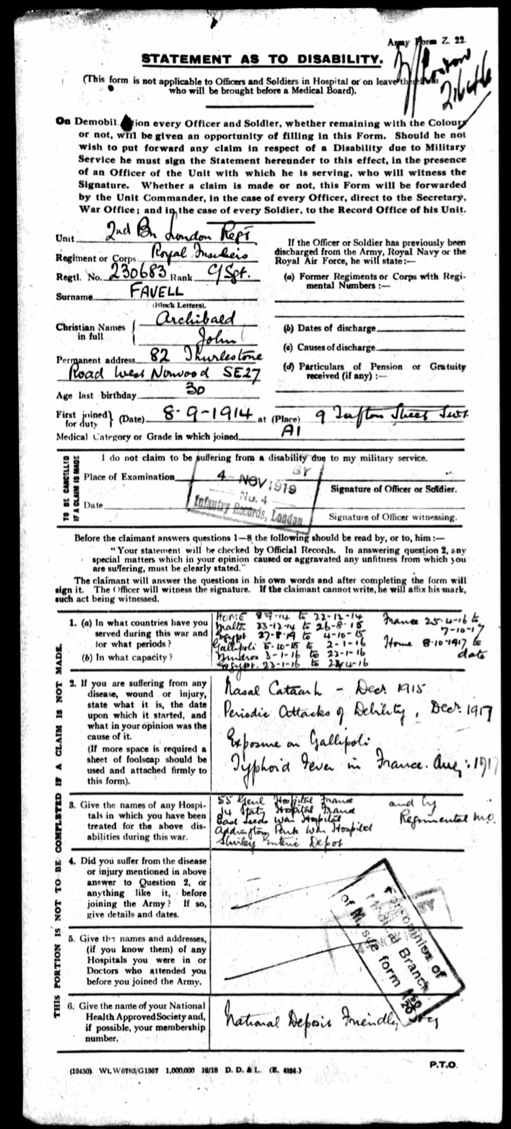 Army Form Z. 22.
STATEMENT AS TO DISABILITY.
(This form is not applicable to Officers and Soldiers in Hospital or on leave
who will be brought before a Medical Board).
On Demobilization every Officer and Soldier, whether remaining with the Colours
or not, will be given an opportunity of filling in this Form. Should he not
wish to put forward any claim in respect of a Disability due to Military
Service he must sign the Statement hereunder to this effect, in the presence
of an Officer of the Unit with which he is serving, who will witness the
Signature. Whether a claim is made or not, this Form will be forwarded
by the Unit Commander, in the case of every Officer, direct to the Secretary,
War Office; and in the case of every Soldier, to the Record Office of his Unit.
Unit 2nd Bn London Regt
Regiment or Corps Royal Fusiliers
Regtl. No. 230683 Rank C/Sgt.
Surname FAVELL
(Block Letters).
Christian Names in full Archibald
John
Permanent address 82 Thurlestone
Road West Norwood SE27
Age last birthday 30
If the Officer or Soldier has previously been
discharged from the Army, Royal Navy or the
Royal Air Force, he will state:—
(a) Former Regiments or Corps with Regi-
mental Numbers :—
(b) Dates of discharge
(c) Causes of discharge
(d) Particulars of Pension or Gratuity
received (if any) :—
First joined for duty } (Date) 8-9-1914 at (Place) 9 Tufton Street
Medical Category or Grade in which joined A1
TO BE CANCELLED IF A CLAIM IS MADE
I do not claim to be suffering from a disability due to my military service.
Place of Examination
Date
4 - NOV 1919
No. 4
Infantry Records, London
Signature of Officer or Soldier.
Signature of Officer witnessing.
Before the claimant answers questions 1—8 the following should be read by, or to, him :—
"Your statement will be checked by Official Records. In answering question 2, any
special matters which in your opinion caused or aggravated any unfitness from which you
are suffering, must be clearly stated."
The claimant will answer the questions in his own words and after completing the form will
sign it. The Officer will witness the signature. If the claimant cannot write, he will affix his mark,
such act being witnessed.
THIS PORTION IS NOT TO BE COMPLETED IF A CLAIM IS NOT MADE.
1. (a) In what countries have you
served during this war and
for what periods?
(b) In what capacity?
HOME 8-9-14 to 22-12-14
Malta 23-12-14 to 26-8-15
Egypt 27-8-19 to 4-10-15
Gallipoli 5-10-15 to 2-1-16
Mudros 3-1-16 to 22-1-16
Egypt. 23-1-16 to 24-4-16
France 25-4-16 to
7-10-17
Home 8-10-1917 to
date
2. If you are suffering from any
disease, wound or injury,
state what it is, the date
upon which it started, and
what in your opinion was the
cause of it.
(If more space is required a
sheet of foolscap should be
used and attached firmly to
this form).
Nasal Catarrh - Decr 1915
Periodic Attacks of Debility, Decr 1917
Exposure on Gallipoli
Typhoid Fever in France. Aug: 1917
3. Give the names of any Hospi-
tals in which you have been
treated for the above dis-
abilities during this war.
55 Genl Hospital France
14 Staty Hospital France
East Leeds War Hospital
Addington Park War Hospital
Shirley Enteric Depot
and by
Regimental M.O.
4. Did you suffer from the disease
or injury mentioned in above
answer to Question 2, or
anything like it, before
joining the Army? If so,
give details and dates.
5. Give the names and addresses,
(if you know them) of any
Hospitals you were in or
Doctors who attended you
before you joined the Army.
For opinion of
Medical Branch
of M. s/ve form
6. Give the name of your National
Health Approved Society and,
if possible, your membership
number.
National Deposit Friendly Socy
P.T.O.
(12450) Wt. W6783/G1367 1,000,000 12/18 D. D. & L. (E. 4124.)